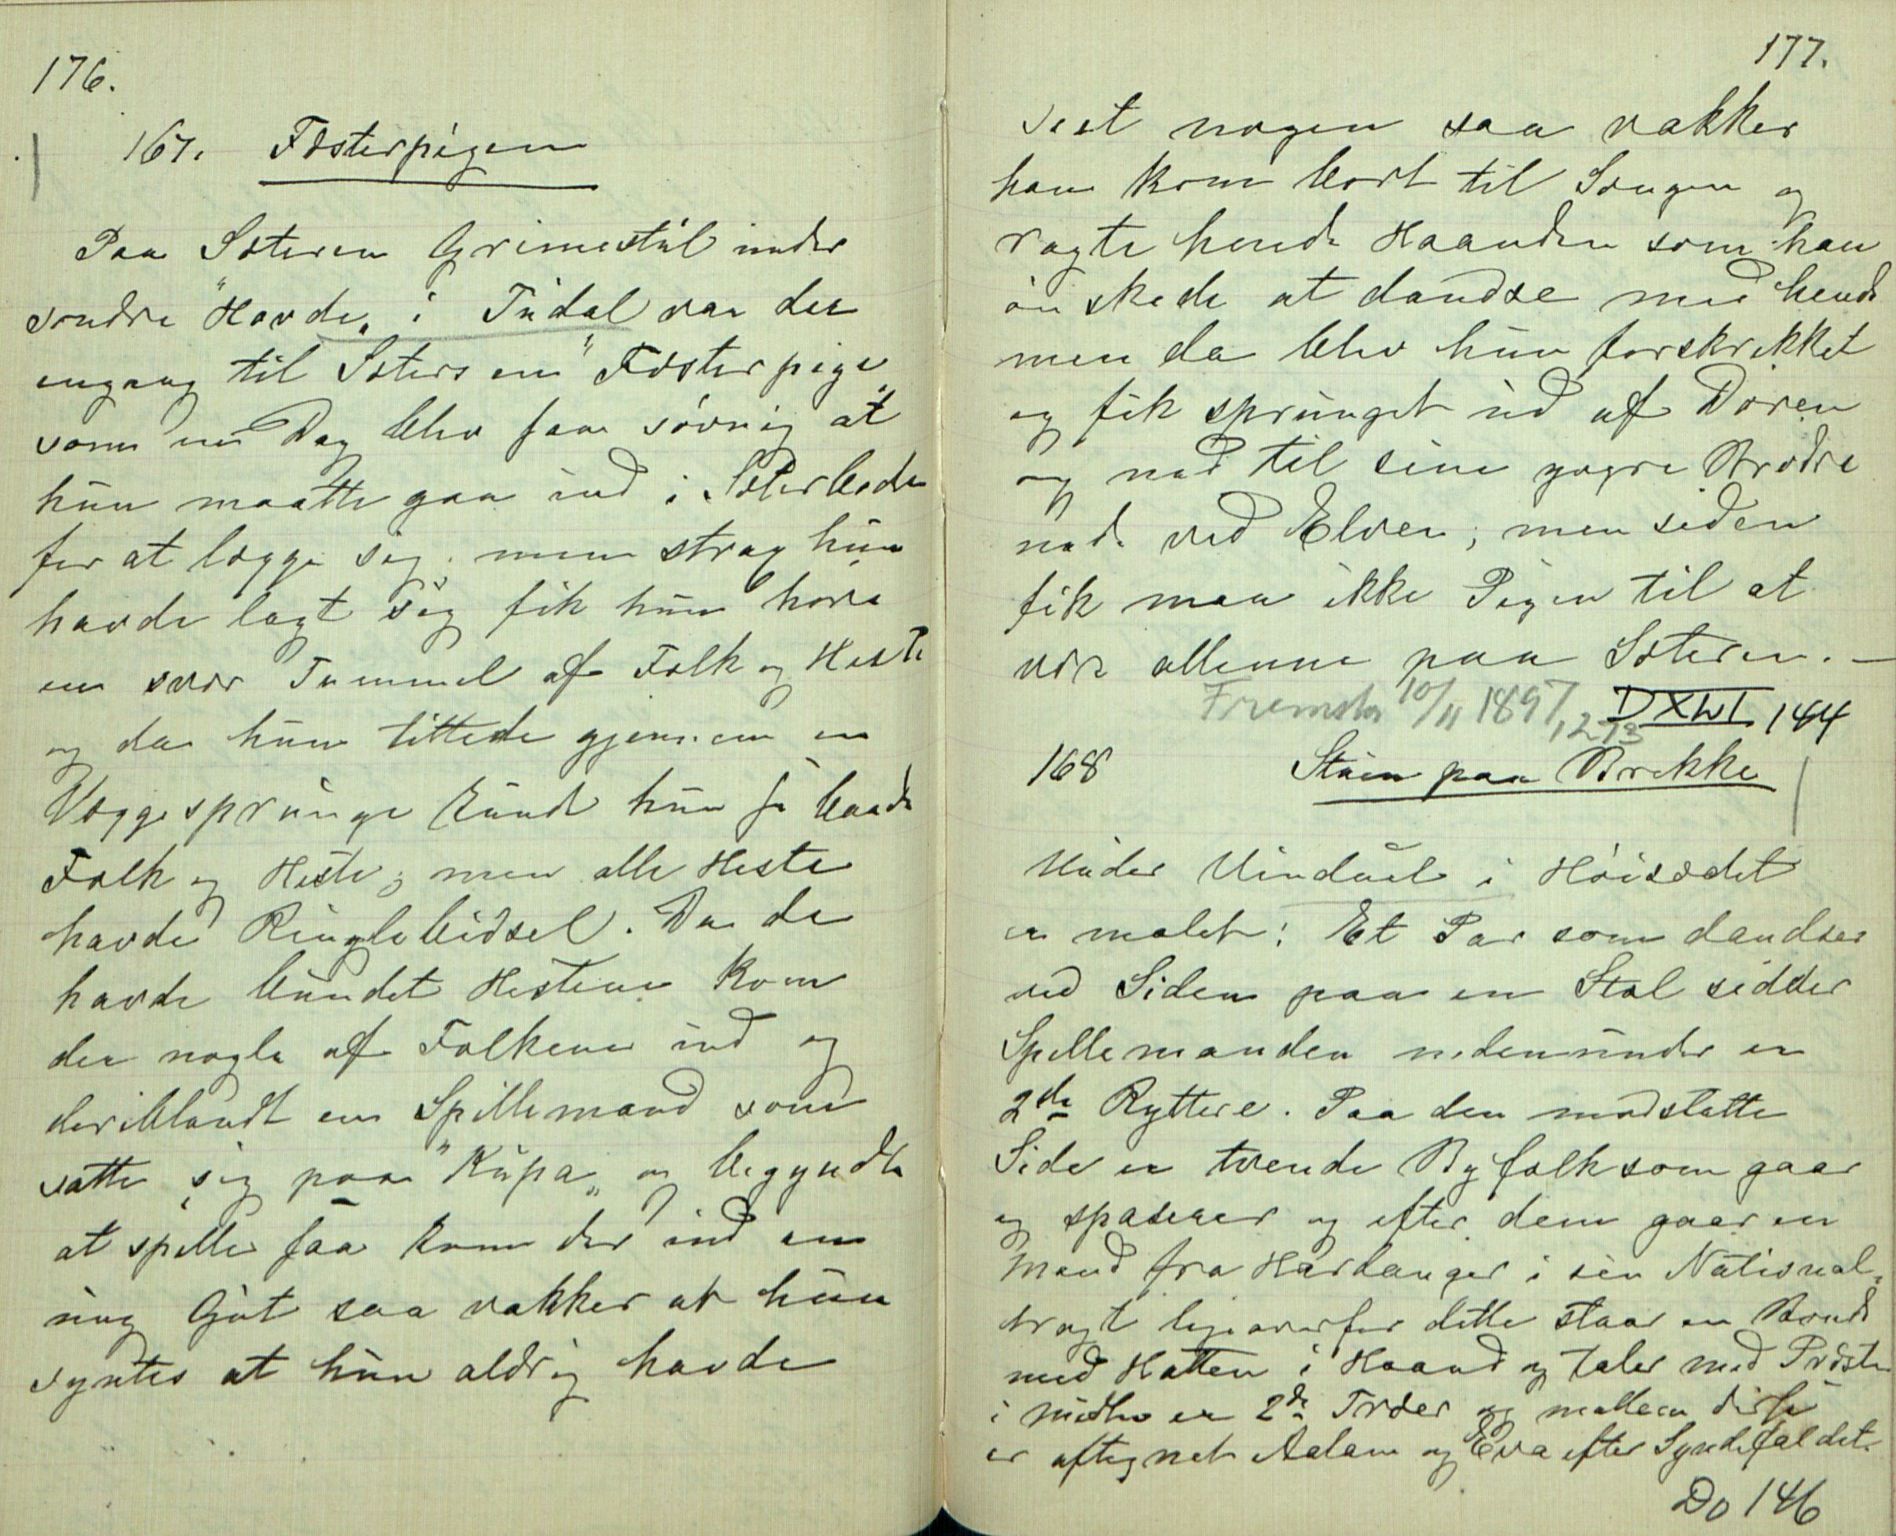 176.
167. Fæsterpigen
Paa Sæteren Grimestúl under
søndre "Hovde„ i Túdal var der
engang til Sæters en "Fæsterpige„
som en Dag blev saa søvnig at
hún maatte gaa ind i Sæterboden
for at lægge sig; men strax hún
havde lagt sig fik hún høre
en svær Tummel af Folk og Heste
og da hún tittede gjennem en
Væggesprúnge kúnde hún se baade
Folk og Heste; men alle Heste
havde Ringlebidsel. Da de
havde búndet Hestene kom
der nogle af Folkene ind og
deriblandt en Spillemand som
satte sig paa "Kúpa„ og begyndte
at spille saa kom der ind en
úng Gút saa vakker at hún
syntes at hún aldrig havde
177.
seet nogen saa vakker
han kom bort til Sengen og
ragte hende Haanden som han
ønskede at dandse med hende
men da blev hún forskrækket
og fik sprúnget úd af Døren
og ned til sine yngre Brødre
nede ved Elven; men siden
fik man ikke Pigen til at
være allenne paa Sæteren. —
10/11 1897 1273 DXLVI 144
168 Stúen paa Brekke
Under Vindúet i Høisædet
er malet: Et Par som dandser
ved Siden paa en Stol sidder
Spillemanden nedenúnder er
2de Ryttere. Paa den modsatte
Side er tvende Byfolk som gaar
og spaserer og efter dem gaar en
Mand fra Hardanger i sin National-
dragt ligeoverfor dette staar en Bonde
med Hatten i Haand og taler med Præsten
i Midten er 2de Træer og mellem disse
er aftegnet Adam og Eva efter Syndefaldet.
Do 146